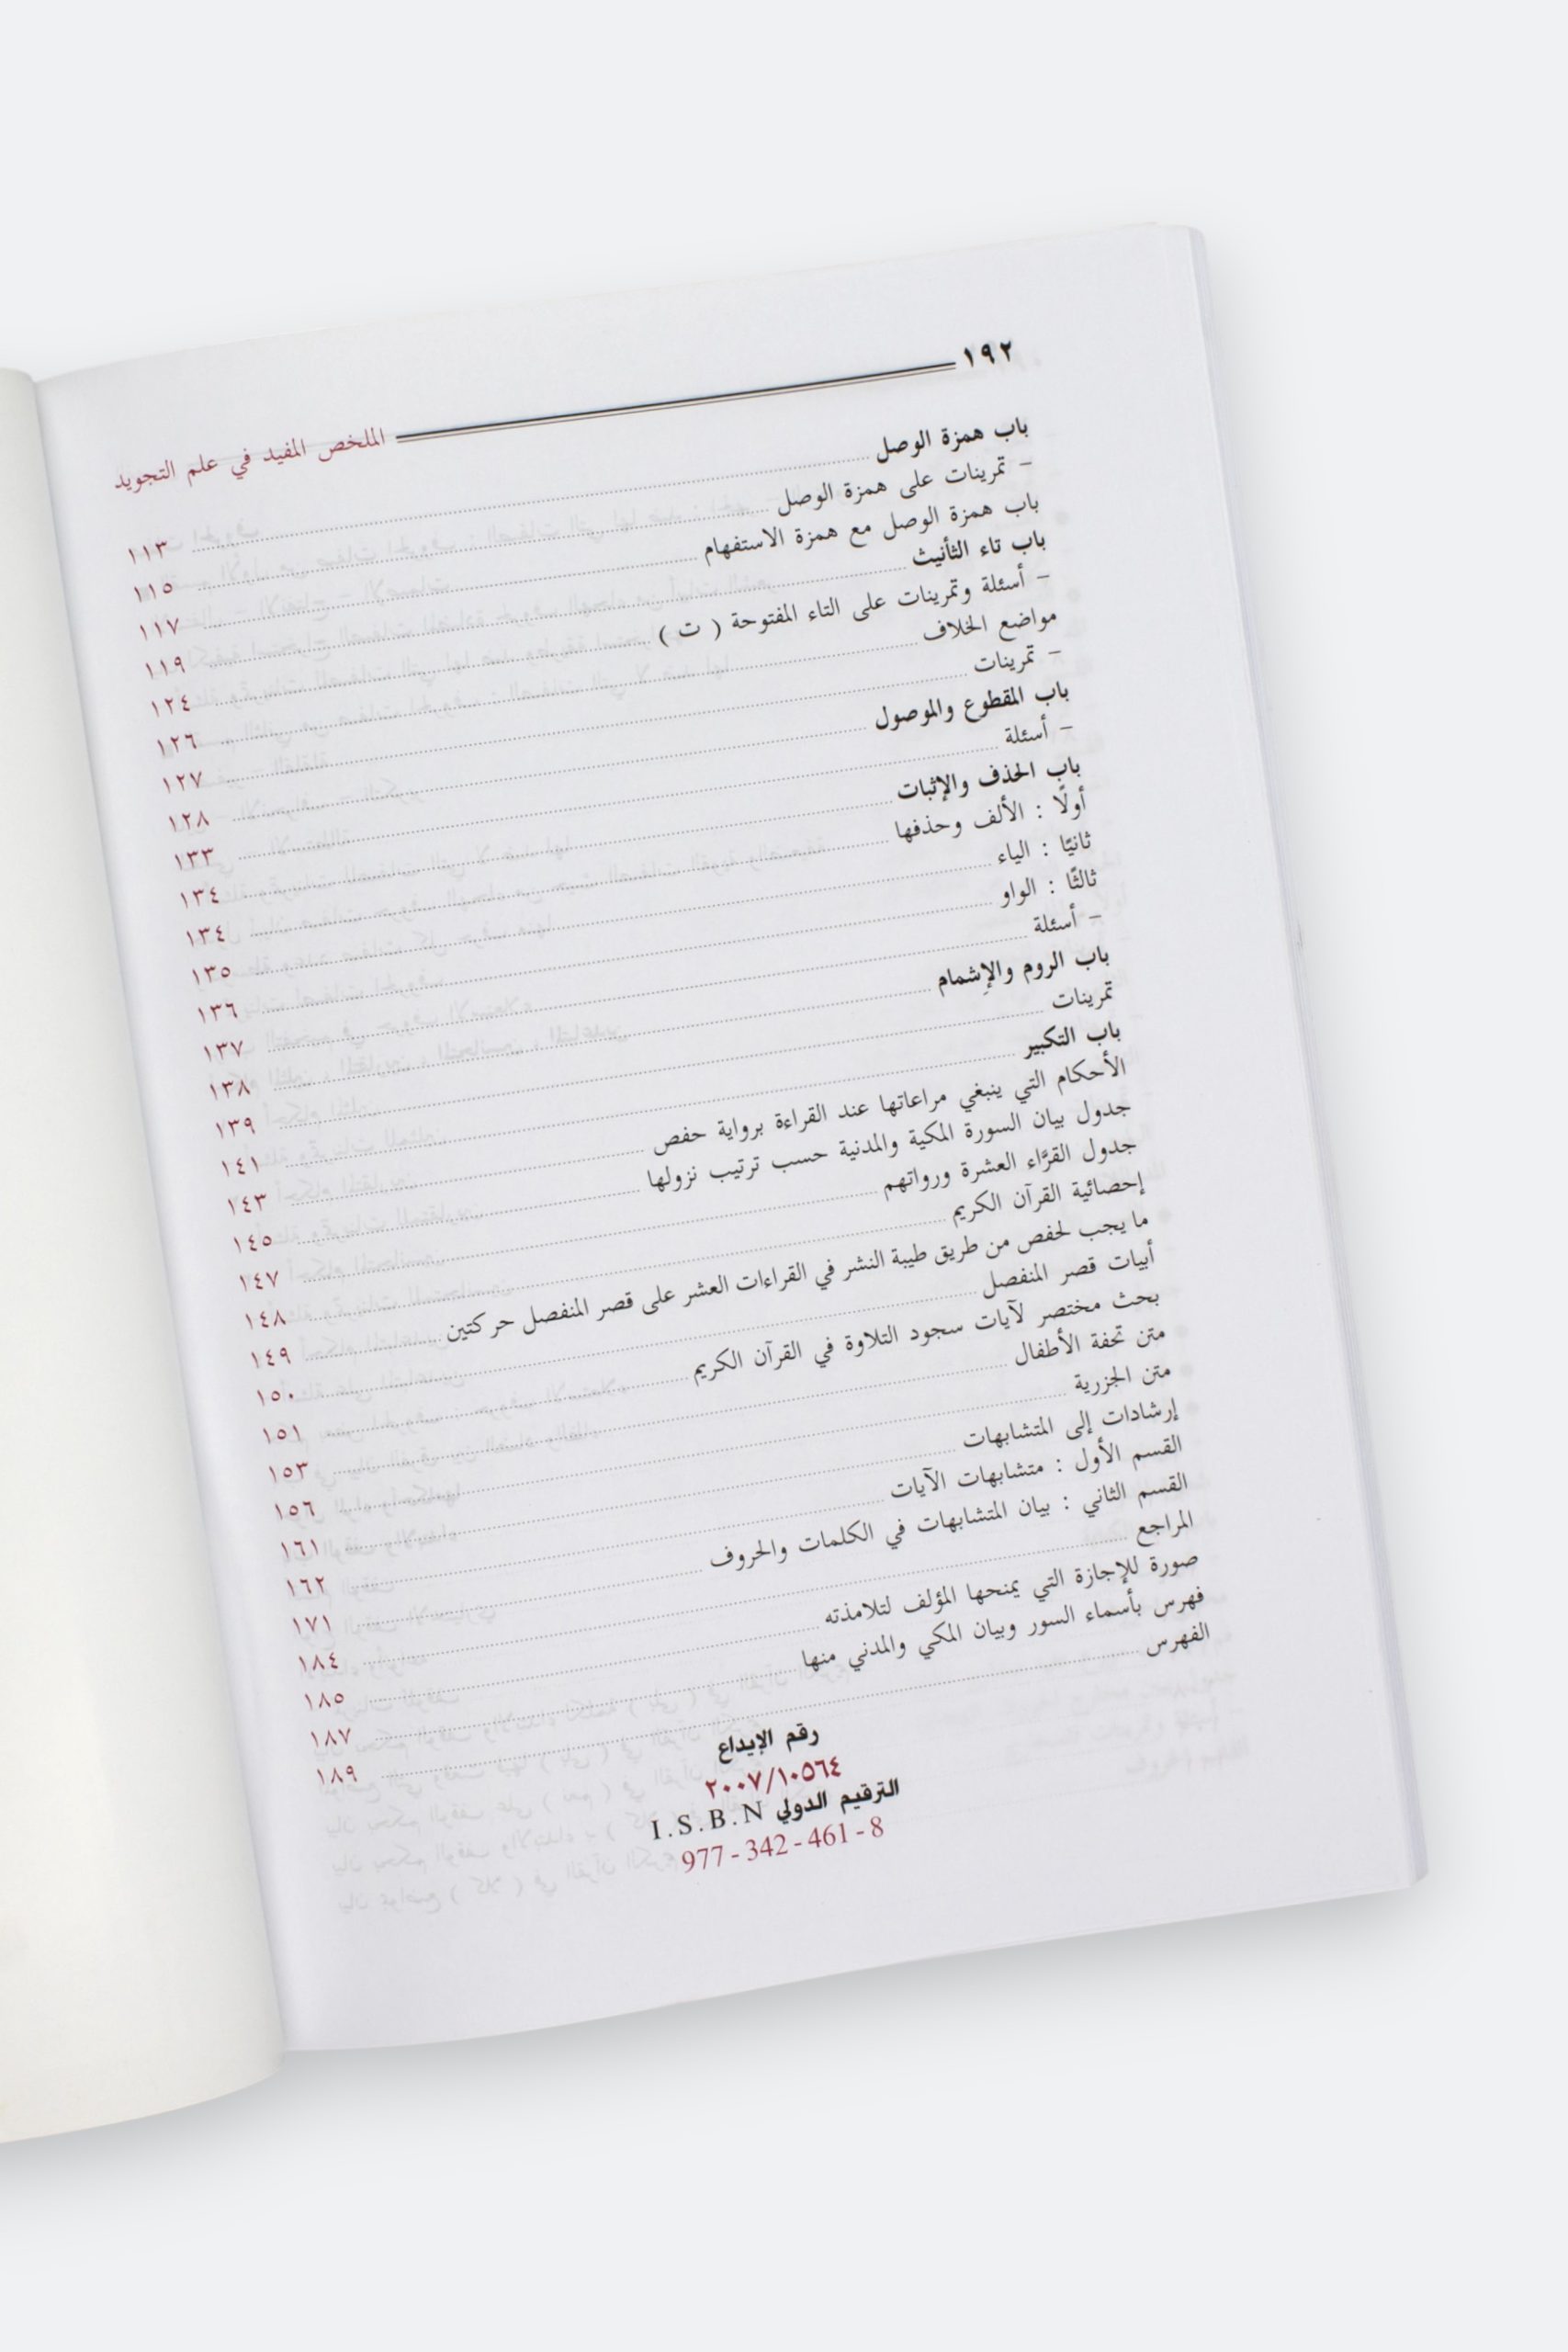 ١٩٢ الملخص المفيد في علم التجويد
باب همزة الوصل ١١٣
– تمرينات على همزة الوصل ١١٥
باب همزة الوصل مع همزة الاستفهام ١١٧
باب تاء التأنيث ١١٩
– أسئلة وتمرينات على التاء المفتوحة ( ت ) ١٢٤
مواضع الخلاف ١٢٦
– تمرينات ١٢٧
باب المقطوع والموصول ١٢٨
– أسئلة ١٣٣
باب الحذف والإثبات ١٣٤
أولًا : الألف وحذفها ١٣٤
ثانيًا : الياء ١٣٥
ثالثًا : الواو ١٣٦
– أسئلة ١٣٧
باب الروم والإشمام ١٣٨
تمرينات ١٣٩
باب التكبير ١٤١
الأحكام التي ينبغي مراعاتها عند القراءة برواية حفص ١٤٣
جدول بيان السورة المكية والمدنية حسب ترتيب نزولها ١٤٥
جدول القرَّاء العشرة ورواتهم ١٤٧
إحصائية القرآن الكريم ١٤٨
ما يجب لحفص من طريق طيبة النشر في القراءات العشر على قصر المنفصل حركتين ١٤٩
أبيات قصر المنفصل ١٥٠
بحث مختصر لآيات سجود التلاوة في القرآن الكريم ١٥١
متن تحفة الأطفال ١٥٣
متن الجزرية ١٥٦
إرشادات إلى المتشابهات ١٦١
القسم الأول : متشابهات الآيات ١٦٢
القسم الثاني : بيان المتشابهات في الكلمات والحروف ١٧١
المراجع ١٨٤
صورة للإجازة التي يمنحها المؤلف لتلامذته ١٨٥
فهرس بأسماء السور وبيان المكي والمدني منها ١٨٧
الفهرس ١٨٩
رقم الإيداع
٢٠٠٧/١٠٥٦٤
الترقيم الدولي I.S.B.N
977 - 342 - 461 - 8